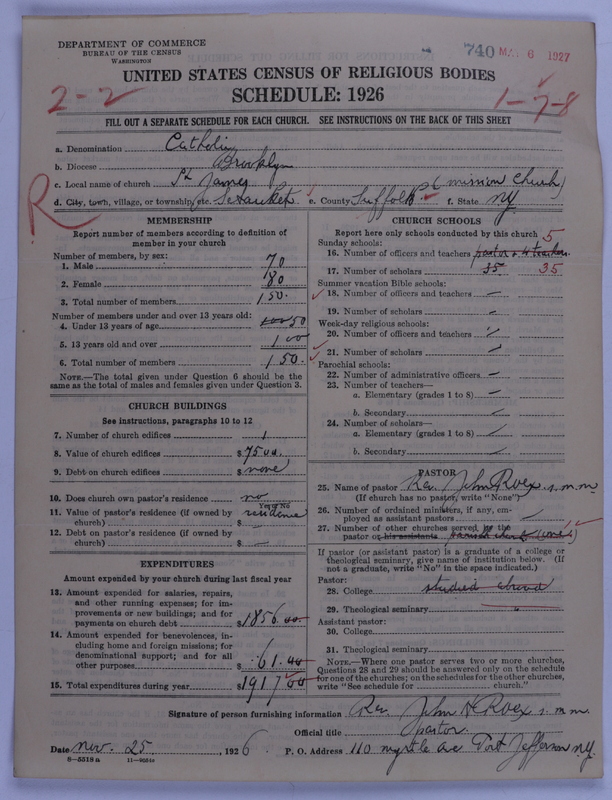 DEPARTMENT OF COMMERCE
BUREAU OF THE CENSUS
WASHINGTON
740 MAR 6 1927
UNITED STATES CENSUS OF RELIGIOUS BODIES
SCHEDULE: 1926
2-2
1-7-8
FILL OUT A SEPARATE SCHEDULE FOR EACH CHURCH. SEE INSTRUCTIONS ON THE BACK OF THIS SHEET
a. Denomination Catholic
b. Diocese Brooklyn
c. Local name of church St James (mission church)
R
d. City, town, village, or township, etc. Setauket e. County Suffolk f. State NY
MEMBERSHIP
Report number of members according to definition of member in your church
Number of members, by sex:
1. Male 70
2. Female 80
3. Total number of members 150.
Number of members under and over 13 years old:
4. Under 13 years of age 50
5. 13 years old and over 100
6. Total number of members 150.
NOTE.—The total given under Question 6 should be the same as the total of males and females given under Question 3.
CHURCH BUILDINGS
See instructions, paragraphs 10 to 12
7. Number of church edifices 1
8. Value of church edifices $7500.
9. Debt on church edifices $none
10. Does church own pastor's residence no
Yes or No
11. Value of pastor's residence (if owned by church) residence $ —
12. Debt on pastor's residence (if owned by church) $ —
EXPENDITURES
Amount expended by your church during last fiscal year
13. Amount expended for salaries, repairs, and other running expenses; for improvements or new buildings; and for payments on church debt $1856.00
14. Amount expended for benevolences, including home and foreign missions; for denominational support; and for all other purposes $61.00
15. Total expenditures during year $1917.00
CHURCH SCHOOLS
Report here only schools conducted by this church 5
Sunday schools:
16. Number of officers and teachers pastor & 4 teachers
17. Number of scholars 35 35
Summer vacation Bible schools:
18. Number of officers and teachers —
19. Number of scholars —
Week-day religious schools:
20. Number of officers and teachers —
21. Number of scholars —
Parochial schools:
22. Number of administrative officers —
23. Number of teachers—
a. Elementary (grades 1 to 8) —
b. Secondary —
24. Number of scholars—
a. Elementary (grades 1 to 8) —
b. Secondary —
PASTOR
25. Name of pastor Rev. John Roex s.m.m
(If church has no pastor, write "None")
26. Number of ordained ministers, if any, employed as assistant pastors —
27. Number of other churches served by the pastor or his assistants parish church (one)
If pastor (or assistant pastor) is a graduate of a college or theological seminary, give name of institution below. (If not a graduate, write "No" in the space indicated.)
Pastor:
28. College studied abroad
29. Theological seminary "
Assistant pastor:
30. College
31. Theological seminary
NOTE.—Where one pastor serves two or more churches, Questions 28 and 29 should be answered only on the schedule for one of the churches; on the schedules for the other churches, write "See schedule for ........ church."
Signature of person furnishing information Rev. John H Roex s.m.m.
Official title pastor.
Date nov. 25, 1926. P. O. Address 110 myrtle ave Port Jefferson NY.
8-5518 a 11-9251